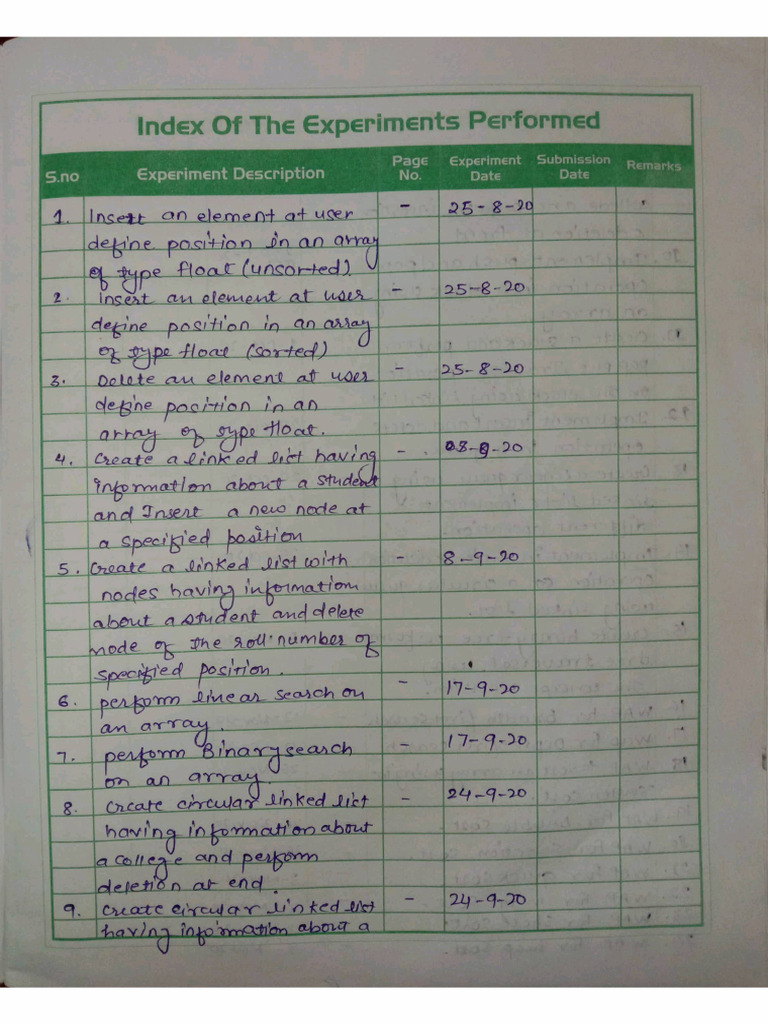 Index Of The Experiments Performed
S.no Experiment Description Page No. Experiment Date Submission Date Remarks
1. Insert an element at user - 25-8-20
define position in an array
of type float (unsorted).
2. insert an element at user - 25-8-20
define position in an array
of type float (sorted)
3. Delete an element at user - 25-8-20
define position in an
array of type float.
4. Create a linked list having - 08-9-20
information about a student
and Insert a new node at
a specified position
5. Create a linked list with - 8-9-20
nodes having information
about a student and delete
node of the roll number of
specified position.
6. perform linear search on - 17-9-20
an array.
7. perform Binary search - 17-9-20
on an array.
8. Create circular linked list - 24-9-20
having information about
a college and perform
deletion at end.
9. Create circular linked list - 24-9-20
having information about a